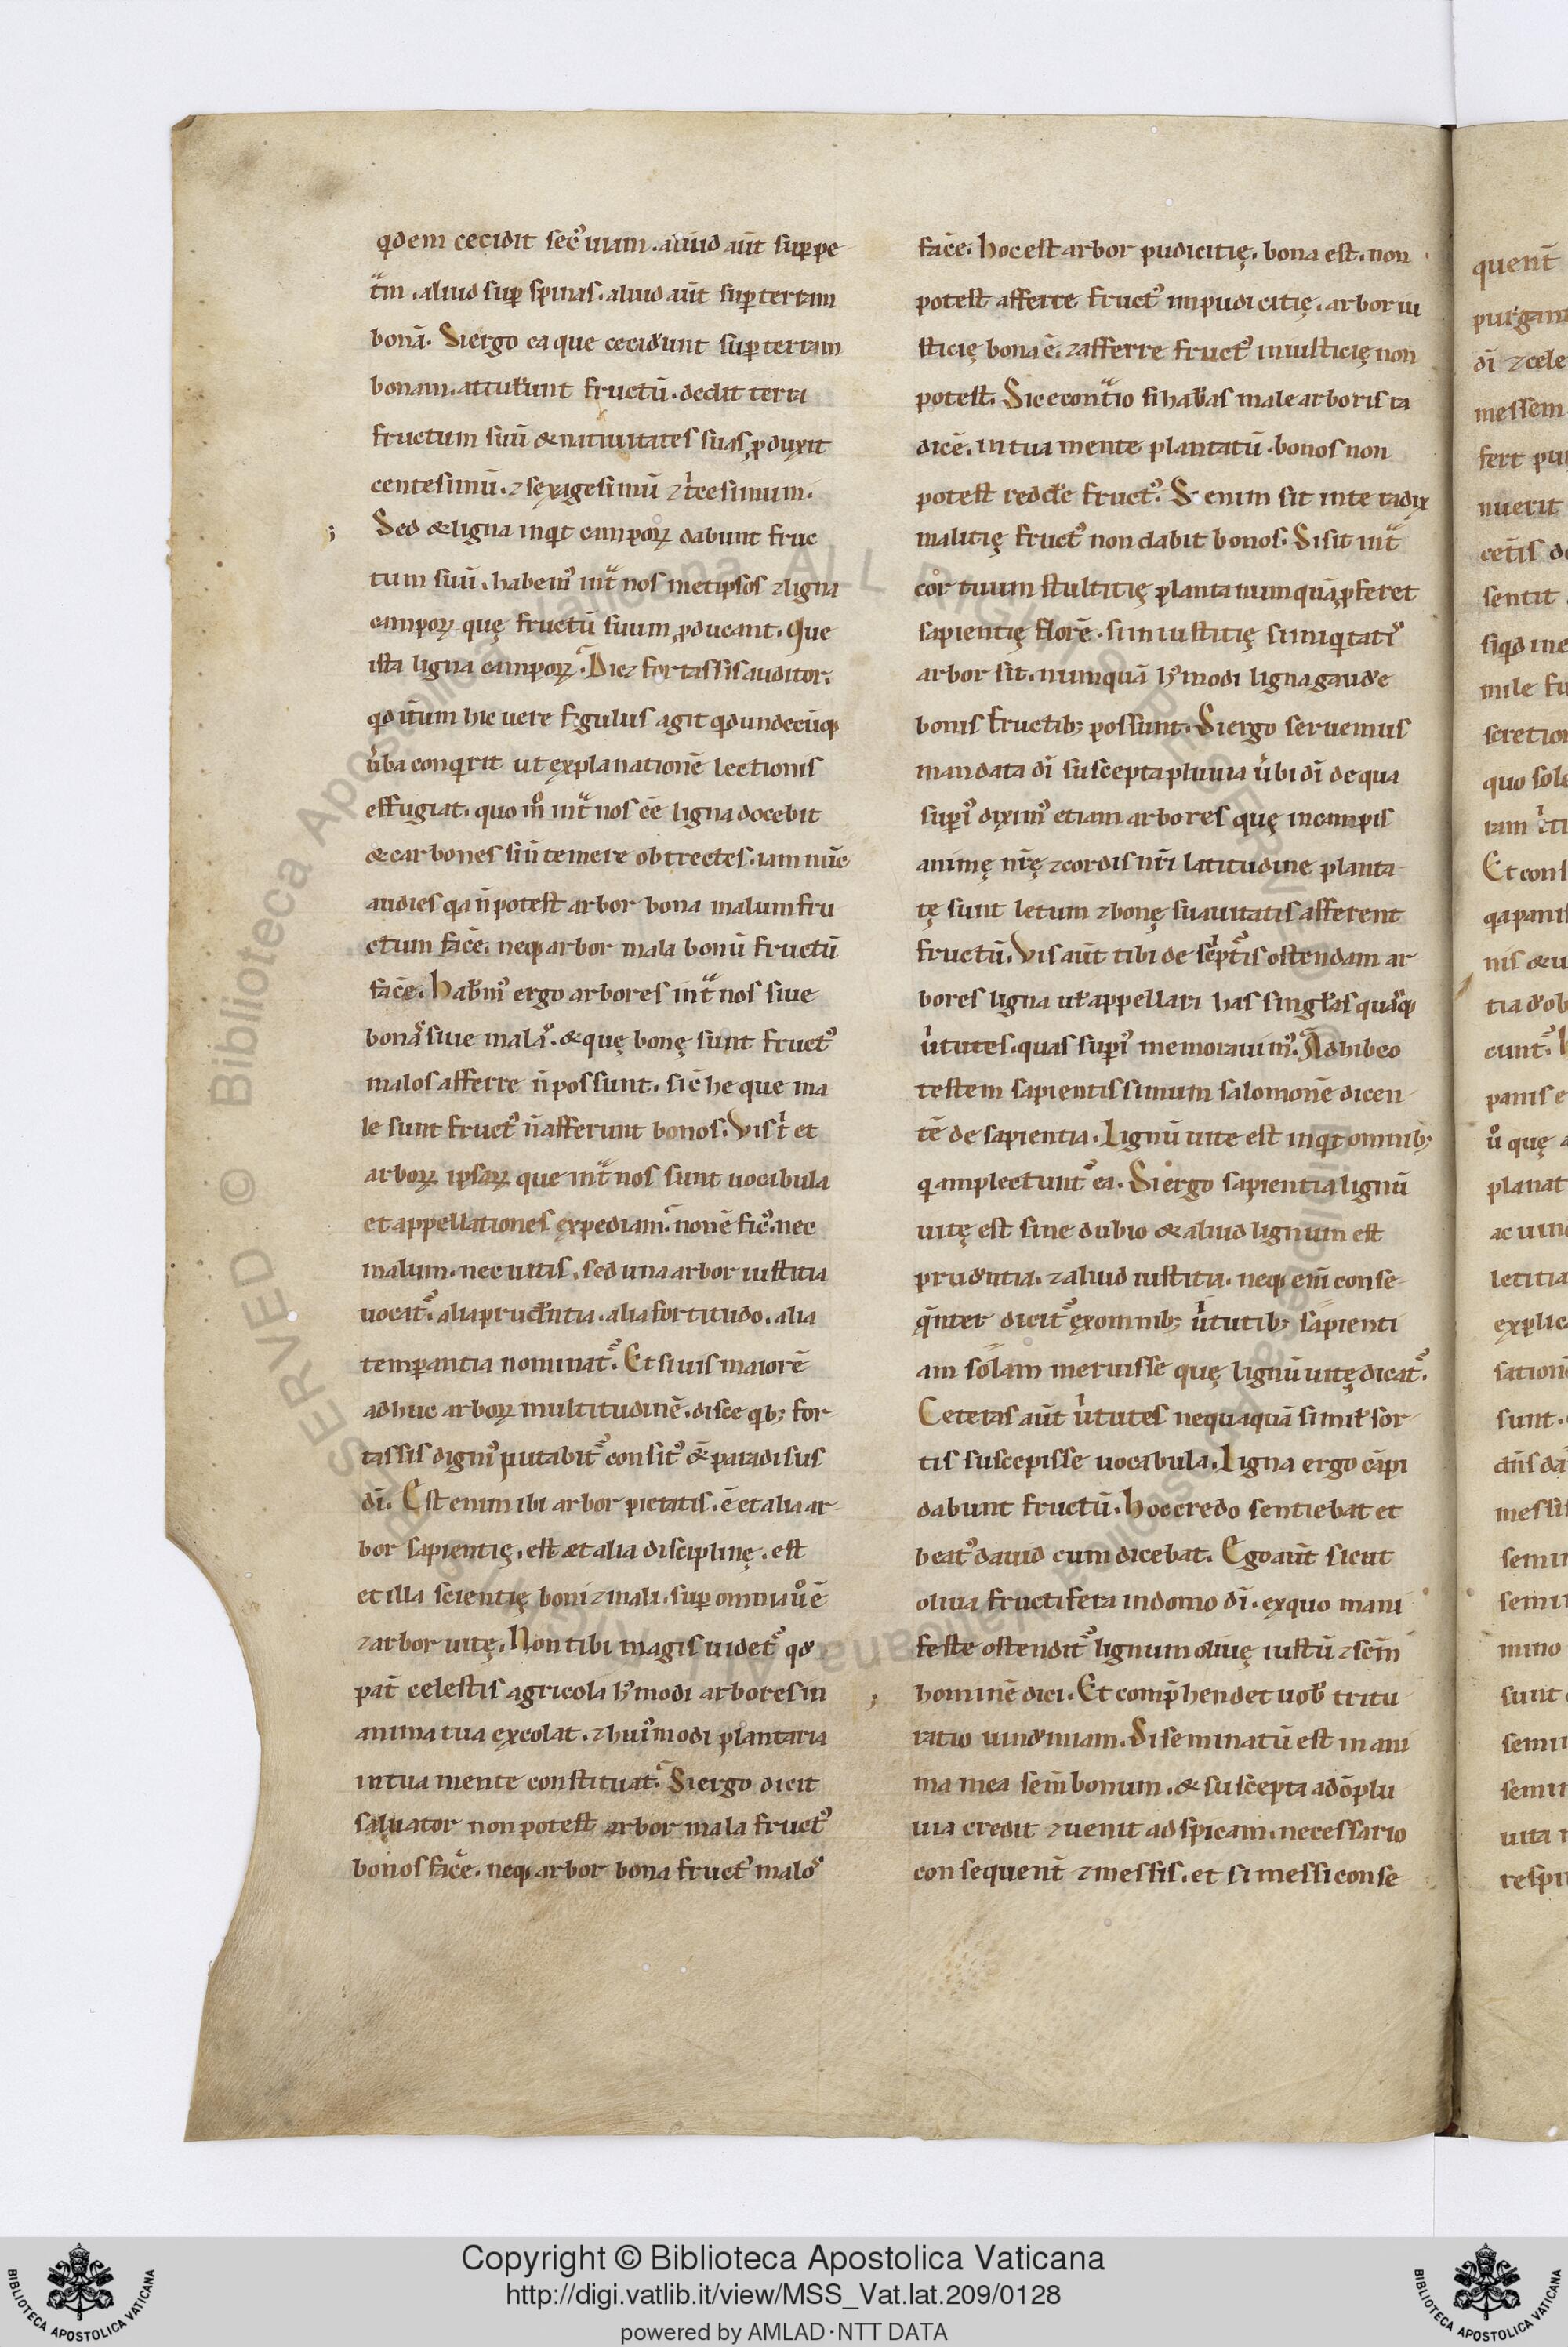 qdem cecidit sec̄ uiam. aliud aūt suꝑ pe
t͛m. aliud suꝑ spinas. aliud aūt suꝑ terram
bonā. Si ergo ea que cecider̄unt suꝑ terram
bonam. attuler̄unt fructū. dedit terra
fructum suū & natiuitates suas ꝓduxit
centesimū. ⁊ sexagesimū ⁊ tͥcesimum.
Sed & ligna inqͥt campoꝝ dabunt fruc
tum suū. habemꝰ int͛ nos metipsos ⁊ ligna
campoꝝ quę fructū suum ꝓducant. Que
ista ligna campoꝝ. Dic⁊ fortassis auditor.
qd itum hic uere figulus agit qd undecūq;
ūba conqͥrit ut explanationē lectionis
effugiat. quo m̊ int͛ nos eē ligna docebit
& carbones si n̄ temere obtrectes. iam nūc
audies qa n̄ potest arbor bona malum fru
ctum facē. neq; arbor mala bonū fructū
facē. Habem̄ꝰ ergo arbores int͛ nos siue
bonas siue malas. & quę bonę sunt fructꝰ
malos afferre n̄ possunt. sic̄ he que ma
le sunt fructꝰ n̄ afferunt bonos. Vis tͥ et
arboꝝ ipsaꝝ que int͛ nos sunt uocabula
et appellationes expediam. non ē ficꝰ. nec
malum. nec uitis. sed una arbor iustitia
uocat᷑. alia prudentia. alia fortitudo. alia
temꝑantia nominat᷑. Et si uis maiorē
adhuc arboꝝ multitudinē. disce qͥb; for
tassis dignꝰ putabit᷑ consitꝰ & paradisus
dī. Est enim ibi arbor pietatis. ē et alia ar
bor sapientię. est et alia disciplinę. est
et illa scientię boni ⁊ mali. suꝑ omnia ů ē
⁊ arbor uitę. Non tibi magis uidet᷑ qd
pat̄ celestis agricola hꝰmodi arbores in
anima tua excolat. ⁊ huiꝰmodi plantaria
in tua mente constituat. Si ergo dicit
saluator non potest arbor mala fructꝰ
bonos facē. neq; arbor bona fructꝰ malos
facē. hoc est arbor pudicitię. bona est. non
potest afferre fructꝰ impudicitię. arbor iu
sticię bona ē. ⁊ afferre fructꝰ iniusticię non
potest. Sic econt͛io si habeas male arboris ra
dicē. in tua mente plantatū. bonos non
potest reddere fructꝰ. Si enim sit in te radix
malitię fructꝰ non dabit bonos. Si sit int͛
cor tuum stultitię planta numquā ꝓferet
sapientię florē. si iniustitię si iniqͥtatis
arbor sit. numquā hꝰmodi ligna gaudere
bonis fructib; possunt. Si ergo seruemus
mandata dī suscepta pluuia ūbi dī de qua
suꝑiꝰ diximꝰ etiam arbores quę in campis
animę nr̄ę ⁊ cordis nr̄i latitudine planta
tę sunt letum ⁊ bonę suauitatis afferent
fructū. Vis aūt tibi de scͥpt᷑is ostendam ar
bores ligna ut appellari has singulas quasq;
ūtutes. quas suꝑiꝰ memorauimꝰ. Adhibeo
testem sapientissimum salomonē dicen
tē de sapientia. Lignū uite est inqͥt omnib;
qͥ amplectunt᷑ ea. Si ergo sapientia lignū
uitę est sine dubio & aliud lignum est
prudentia. ⁊ aliud iustitia. neq; eni᷑ conse
qͣnter dicit᷑ ex omnib; ūtutib; sapienti
am solam meruisse quę lignū uitę dicat᷑.
Ceteras aūt ūtutes nequaquā similis sor
tis suscepisse uocabula. Ligna ergo cāpi
dabunt fructū. Hoc credo sentiebat et
beatꝰ dauid cum dicebat. Ego aūt sicut
oliua fructifera in domo dī. ex quo mani
feste ostendit᷑ lignum oliuę iustū ⁊ scm̄
hominē dici. Et comp̄hendet uob̄ tritu
ratio uindemiam. Si seminatū est in ani
ma mea sem̄ bonum. & suscepta a dn̄o plu
uia credit ⁊ uenit ad spicam. necessario
consequent̄ ⁊ messis. et si messi conse
Copyright © Biblioteca Apostolica Vaticana
http://digi.vatlib.it/view/MSS_Vat.lat.209/0128
powered by AMLAD·NTT DATA